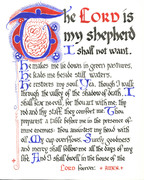 The LORD is
my shepherd
I shall not want.
He makes me lie down in green pastures,
He leads me beside still waters,
He restores my soul. Yea, though I walk
through the valley of the shadow of death, I
shall fear no evil, for thou art with me; thy
rod and thy staff, they comfort me. Thou
preparest a table before me in the presence-
of-mine enemies: thou anointest my head with
oil. My cup overflows. Surely goodness
and mercy shall follow me all the days of my
life. And I shall dwell in the house of the
LORD forever.